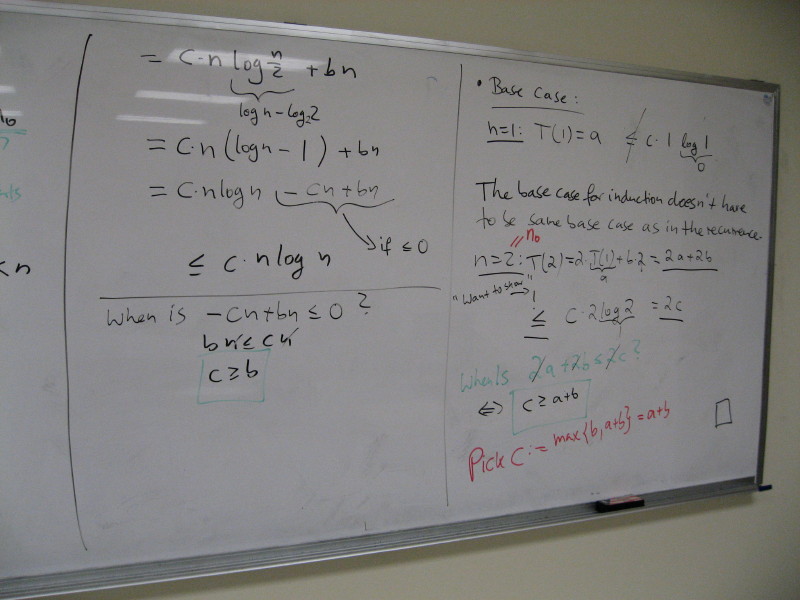 = c·n log n/2 + bn
log n - log₂2
= c·n (log n - 1) + bn
= c·n log n - cn + bn
if ≤ 0
≤ c·n log n
When is -cn + bn ≤ 0 ?
bn ≤ cn
c ≥ b
<n
• Base Case:
n=1: T(1) = a ≰ c·1 log 1
0
The base case for induction doesn't have
to be same base case as in the recurrence.
// n₀
n=2: T(2) = 2·T(1) + b·2 = 2a+2b
a
"Want to show"
≤ c·2 log 2 = 2c
1
When is 2a+2b ≤ 2c ?
⇔ c ≥ a+b
Pick c := max{b, a+b} = a+b